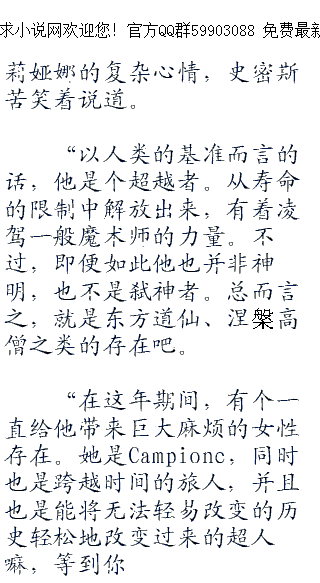 求小说网欢迎您! 官方QQ群59903088 免费最新
莉娅娜的复杂心情，史密斯
苦笑着说道。
“以人类的基准而言的
话，他是个超越者。从寿命
的限制中解放出来，有着凌
驾一般魔术师的力量。不
过，即便如此他也并非神
明，也不是弑神者。总而言
之，就是东方道仙、涅槃高
僧之类的存在吧。
“在这年期间，有个一
直给他带来巨大麻烦的女性
存在。她是Campionc，同时
也是跨越时间的旅人，并且
也是能将无法轻易改变的历
史轻松地改变过来的超人
嘛，等到你